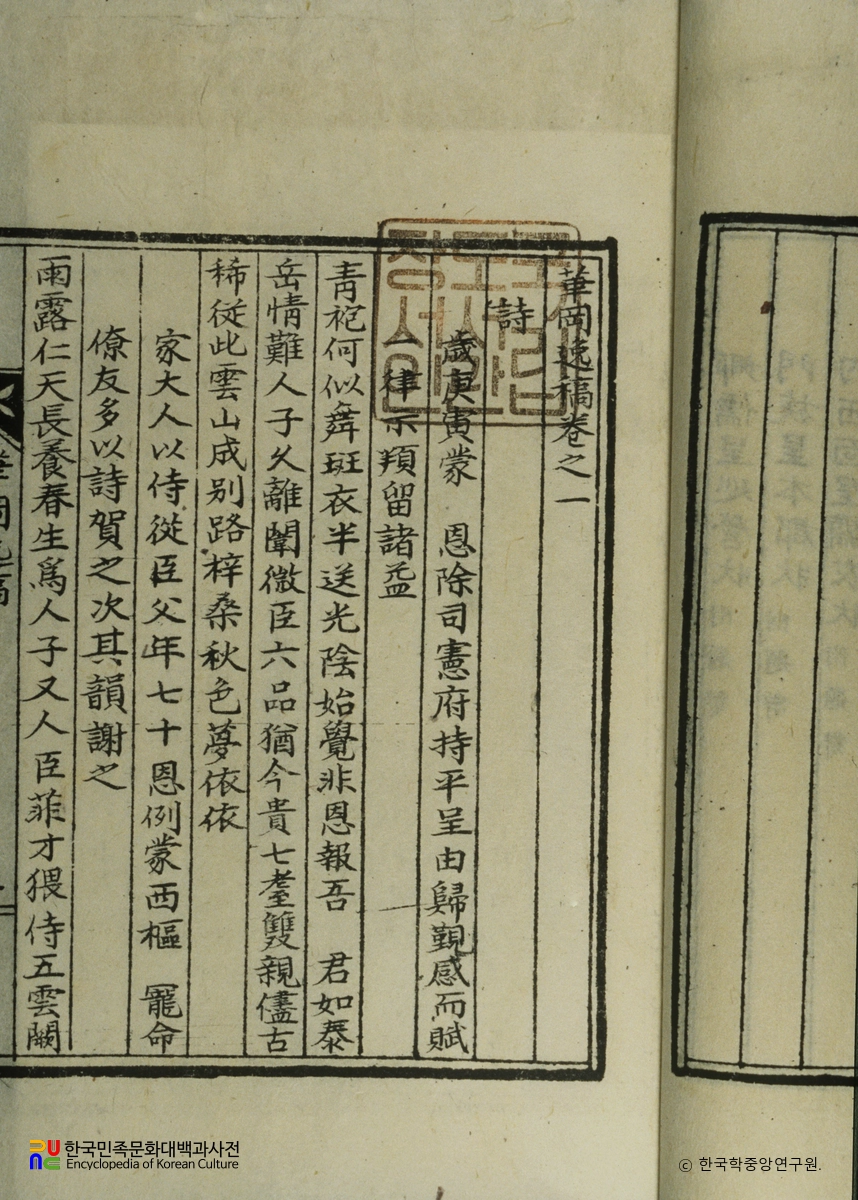 華岡逸稿卷之一
詩
歲庚寅蒙　恩除司憲府持平呈由歸覲感而賦
一律示頖留諸益
靑袍何似舞斑衣半送光陰始覺非恩報吾　君如泰
岳情難人子久離闈微臣六品猶今貴七耋雙親儘古
稀從此雲山成別路梓桑秋色夢依依
家大人以侍從臣父年七十恩例蒙西樞　寵命
僚友多以詩賀之次其韻謝之
雨露仁天長養春生爲人子又人臣菲才猥侍五雲闕
한국민족문화대백과사전
Encyclopedia of Korean Culture
ⓒ 한국학중앙연구원.